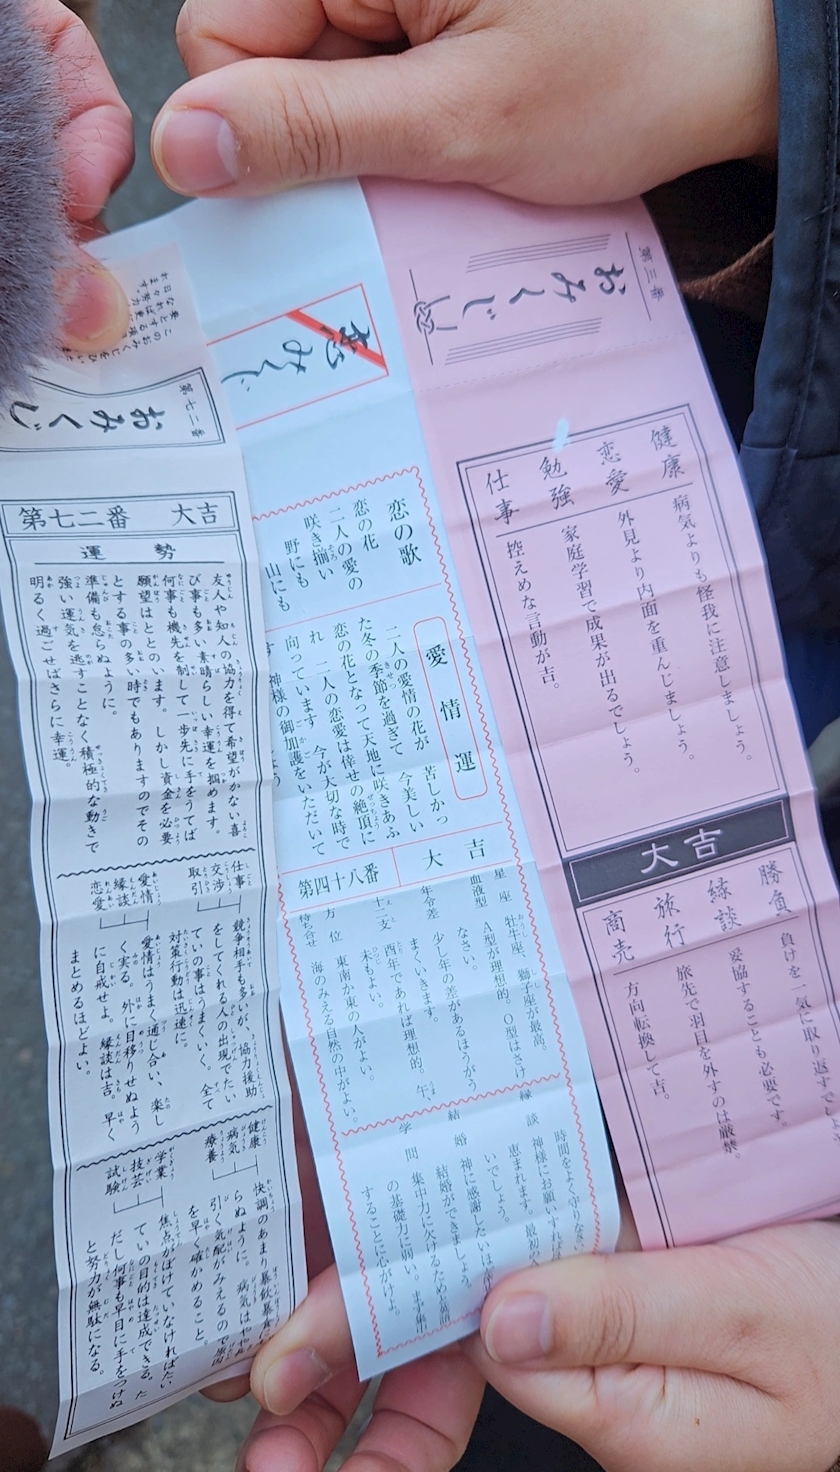 第三番
おみくじ
健康
病気よりも怪我に注意しましょう。
恋愛
外見より内面を重んじましょう。
勉強
家庭学習で成果が出るでしょう。
仕事
控えめな言動が吉。
大吉
勝負
負けを一気に取り返す
縁談
妥協することも必要です。
旅行
旅先で羽目を外すのは厳禁。
商売
方向転換して吉。
恋みくじ
恋の歌
恋の花
二人の愛の
咲き揃い
野にも
山にも
愛情運
二人の愛情の花が 苦しかっ
た冬の季節を過ぎて 今美しい
恋の花となって天地に咲きあふ
れ 二人の恋愛は倖せの絶頂に
向っています 今が大切な時で
す 神様の御加護をいただいて
第四十八番 大吉
星座 牡牛座、獅子座が最高。
血液型 A型が理想的。O型はさけ
なさい。
年令差 少し年の差があるほうがう
まくいきます。
十二支 酉年であれば理想的。午、
未もよい。
方位 東南か東の人がよい。
待ち合せ 海のみえる自然の中がよい。
縁談
神様にお願いすれば
恵まれます。最初の
いでしょう。
結婚 神に感謝したい
結婚ができましょう。
学問 集中力に欠けるため
の基礎力に弱い。
することに心がけよ。
このおみくじをひいた
第七二番
おみくじ
第七二番 大吉
運勢
友人や知人の協力を得て希望がかない喜
び事も多い素晴らしい幸運を掴めます。
何事も機先を制して一歩先に手をうてば
願望はととのいます。しかし資金を必要
とする事の多い時でもありますのでその
準備も怠らぬように。
強い運気を逃すことなく積極的な動きで
明るく過ごせばさらに幸運。
仕事
交渉
取引
競争相手も多いが、協力援助
をしてくれる人の出現でたい
ていの事はうまくいく。全て
対策行動は迅速に。
愛情
縁談
恋愛
愛情はうまく通じ合い、楽し
く実る。外に目移りせぬよう
に自戒せよ。縁談は吉。早く
まとめるほどよい。
健康
病気
療養
快調のあまり暴飲暴食
らぬように。病気は
引く気配がみえるので原因
を早く確かめること。
学業
技芸
試験
焦点がぼけていなければたい
ていの目的は達成できる。た
だし何事も早目に手をつけぬ
と努力が無駄になる。